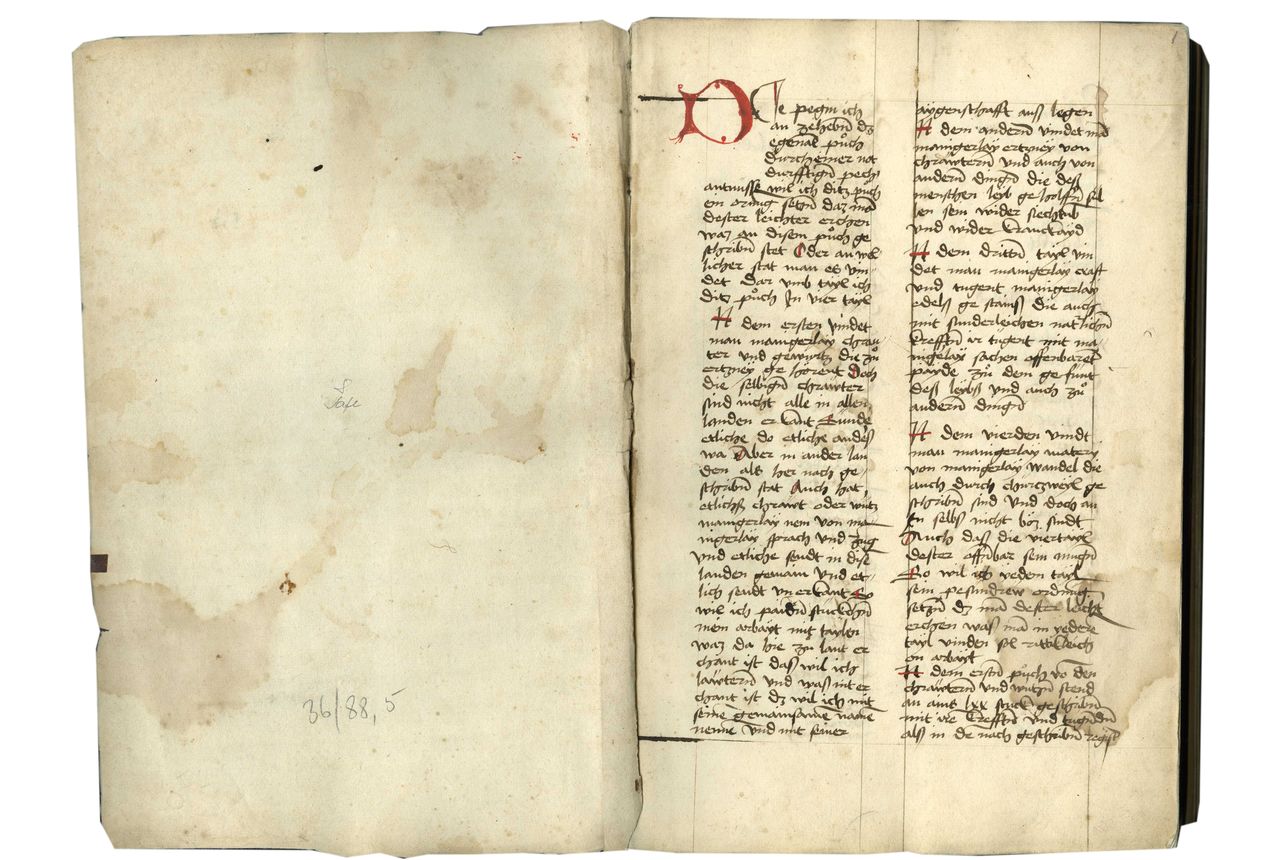 Safe
36/88, 5
1
Die pegin ich
an zehebñ dz
egenāt půch
durch einer not
durfftigñ pech
antnusse wil ich ditz půch
ein ornūg setzñ daz mā
dester leichter erchen
waz an disem půch ge
schribñ stet Oder an wel
licher stat man es vin
det dar vmb tayl ich
ditz půch Jn vier tayl
N dem ersten vindet
man manigerlay chrau
ter vnd gewurtz die zů
ertzney ge hörent Doch
die selbigñ chrawter
sind nicht alle in allen
landen er kant Sunder
etliche do etliche anders
wa Aber in ander lan
den als her nach ge
schribñ stat Auch hat
etlichs chrawt oder wurtz
manigerlay nem von ma
nigerlay sprach vnd zūg
vnd etliche sendt in dise
landen gemain vnd et
lich sendt vn erkant So
wil ich paidñ stuckhñ
mein arbayt mit taylen
waz da hie zu lant er
chant ist das wil ich
lawterñ vnd was nit er
chant ist dz wil ich mit
seinē gemainsamē namē
nennē vnd mit seiner
aygenschafft auß legen
N dem anderñ vindet mā
manigerlay ertzney von
chrawterñ vnd auch von
anderñ dingñ die deß
menschen leyb ge holffñ sül
len sein wider siechtūb
vnd wider kranckayd
N dem drittñ tayl vin
det man manigerlay craft
vnd tugent manigerlay
edels ge stains die auch
mit sunderleichen naturlichñ
krefftñ ir tugent mit ma
nigelay sachen offenbarēt
payde zů dem ge sunt
deß leybs vnd auch zů
anderñ dingñ
N dem vierden vindt
man manigerlay matery
von manigerlay wandel die
auch durch churtzweyl ge
schribñ sind vnd doch an
Jn selbs nicht böz sindt
Auch daß die viertayl
dester offnbar sein mugñ
So wil ich yedem tayl
sein pesundrew ordnūg
setzñ dz mā dester leicht
erchen was mā in yedē
tayl vinden sol
on arbayt
N dem erstñ půch vō den
chrawterñ vnd wurtzñ stend
an ainē lxx stuck geschribñ
mit ire krefftñ vnd tugndñ
als in dē nach geschribñ regist